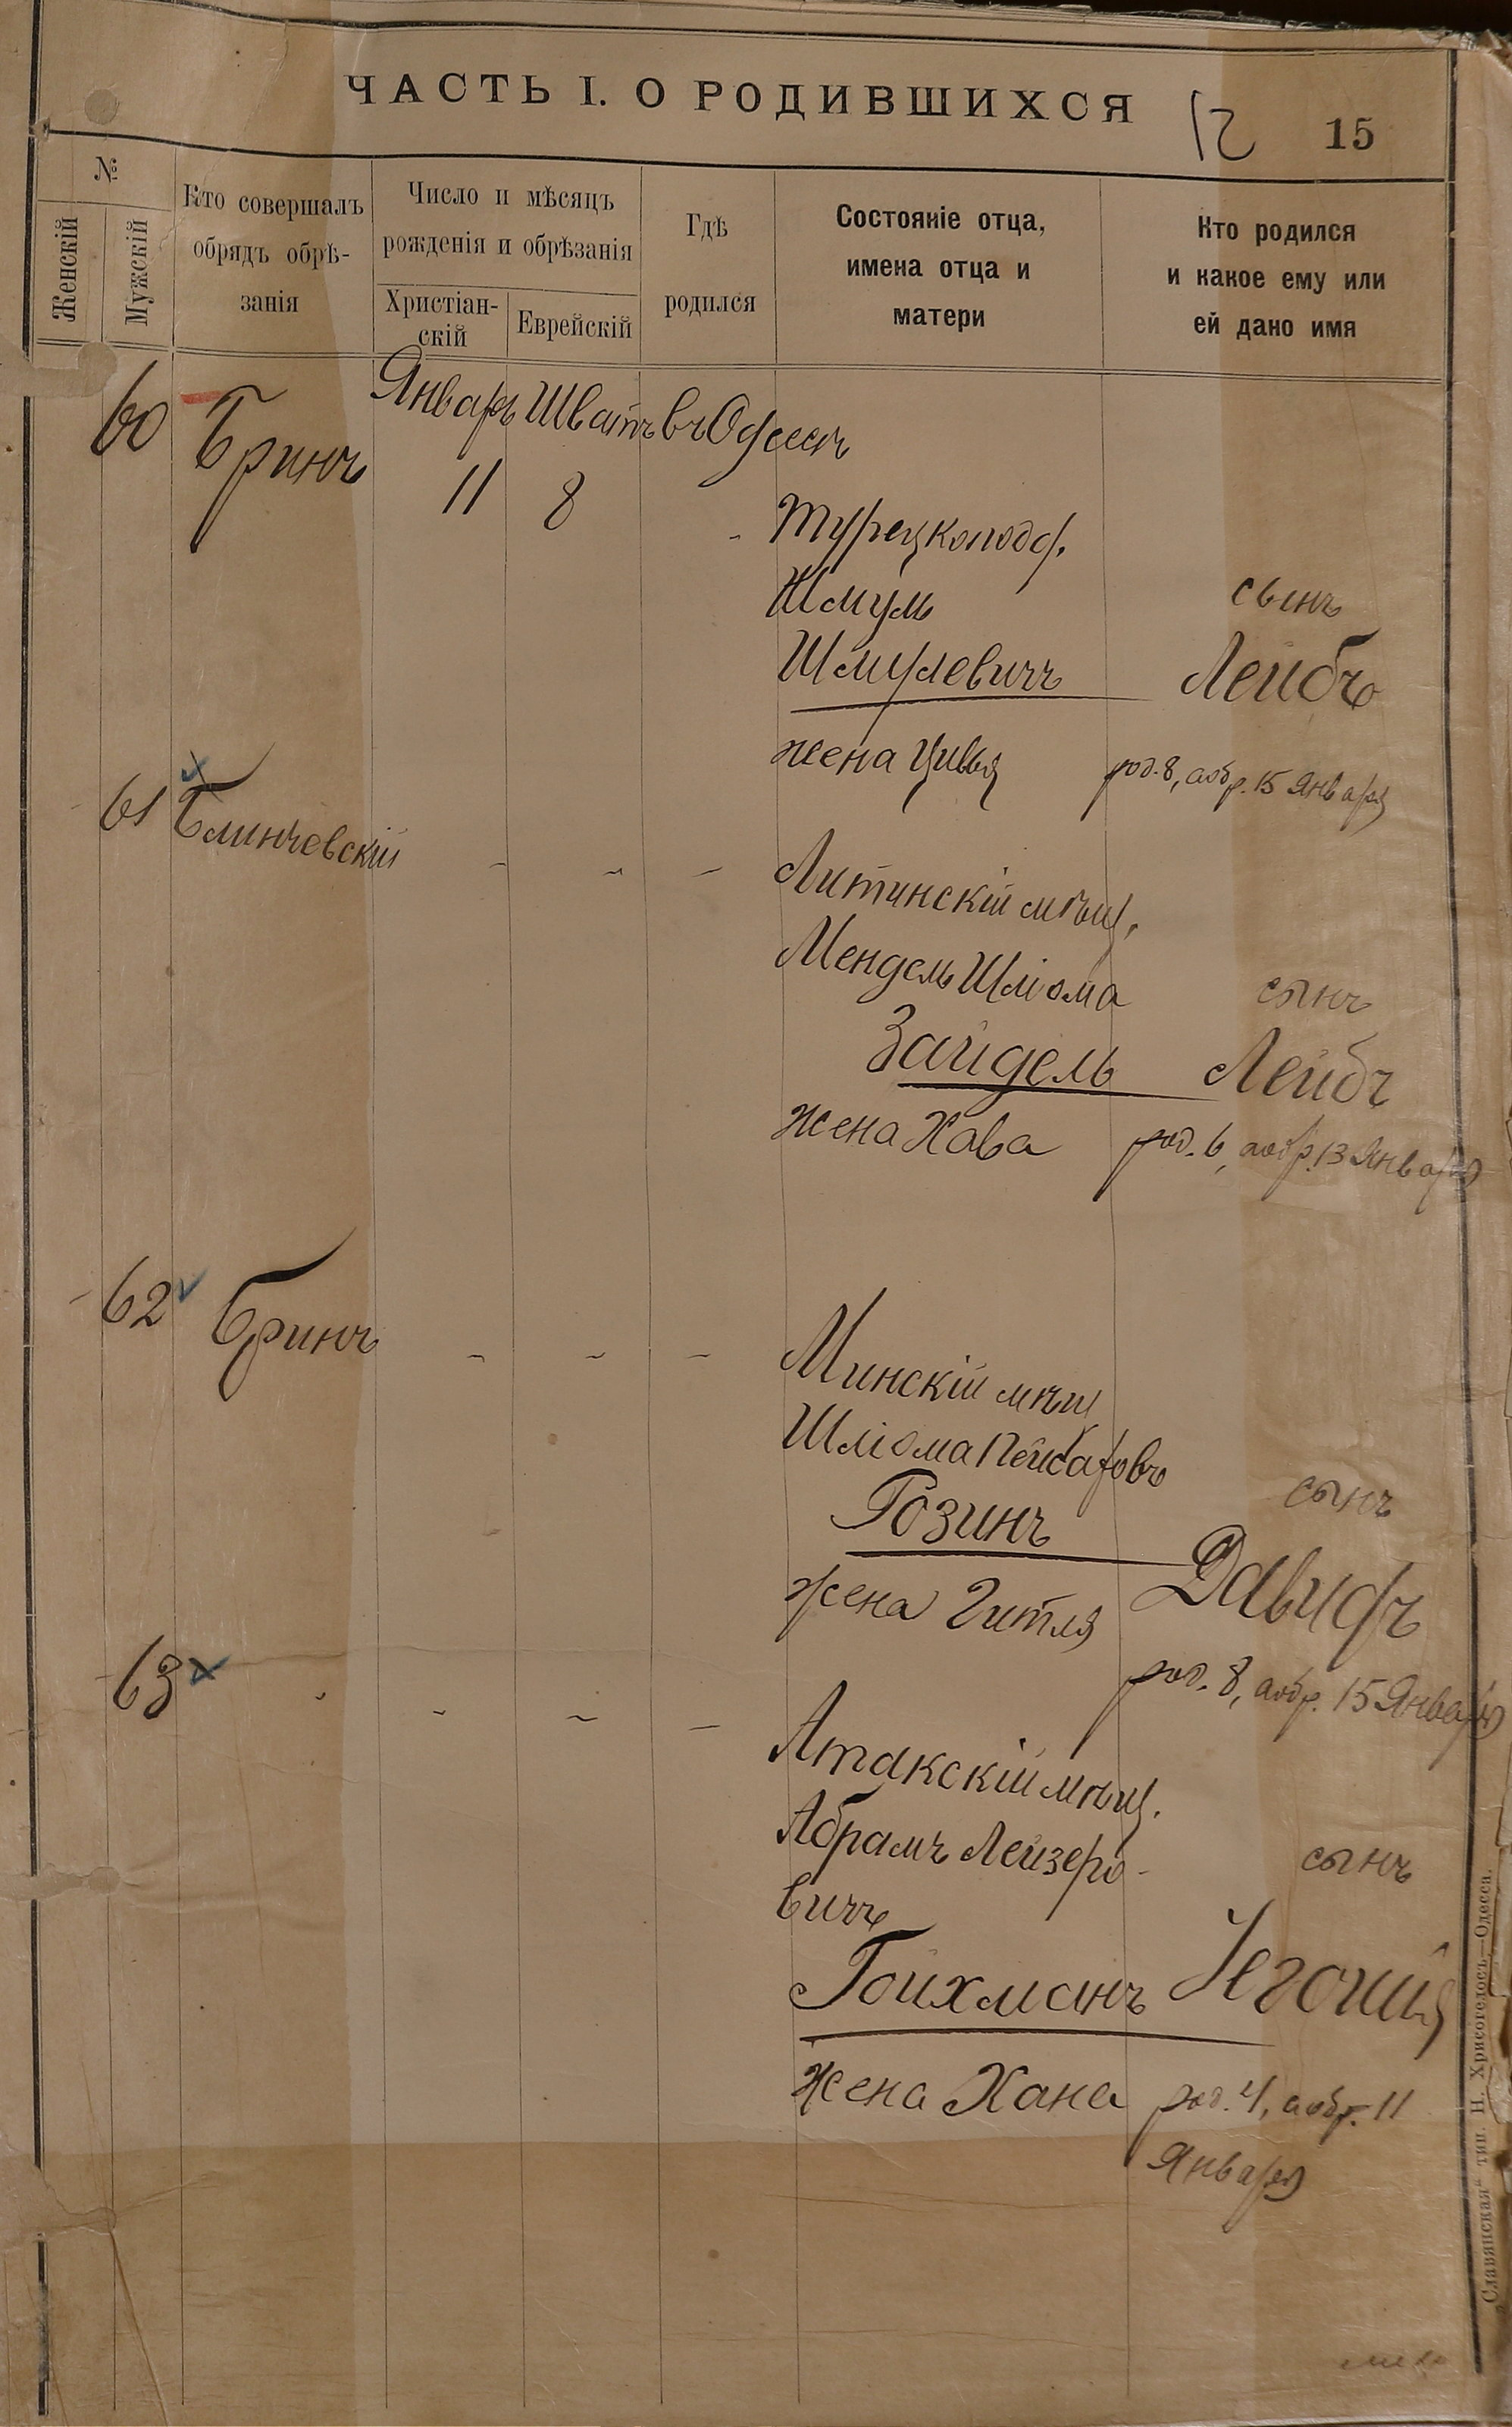 ЧАСТЬ I. О РОДИВШИХСЯ
15
№
Женскій
Мужскій
Кто совершалъ
обрядъ обрѣ-
занія
Число и мѣсяцъ
рожденія и обрѣзанія
Христіан-
скій
Еврейскій
Гдѣ
родился
Состояніе отца,
имена отца и
матери
Кто родился
и какое ему или
ей дано имя
60 Бринъ
Январь Шватъ въ Одессѣ
11 8
Турецкоподд.
Шмуль
Шмулевичъ
жена Цивья
сынъ
Лейбъ
род. 8, а обр. 15 Января
61 Блинчевскій
Литинскій мѣщ.
Мендель Шліома
Зайдель
жена Хава
сынъ
Лейбъ
род. 6, а обр. 13 Января
62 Бринъ
Минскій мѣщ
Шліома
Розинъ
жена Гитля
сынъ
Давидъ
род. 8, а обр. 15 Января
63
Атакскій мѣщ.
Абрамъ Лейзеро-
вичъ
Гойхманъ
жена Хана
сынъ
род. 4, а обр. 11
Января
„Славянская“ тип. Н. Хрисогелосъ.—Одесса.